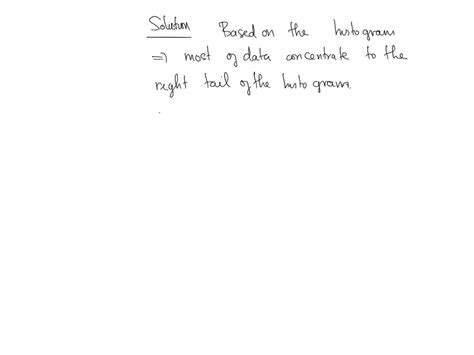 Solution Based on the histogram
⇒ most of data concentrate to the
right tail of the histogram.